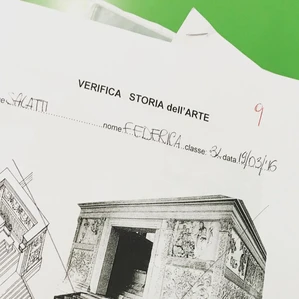 VERIFICA STORIA dell'ARTE
9
e SALATTI nome: FEDERICA classe: 3L data 19/03/'16